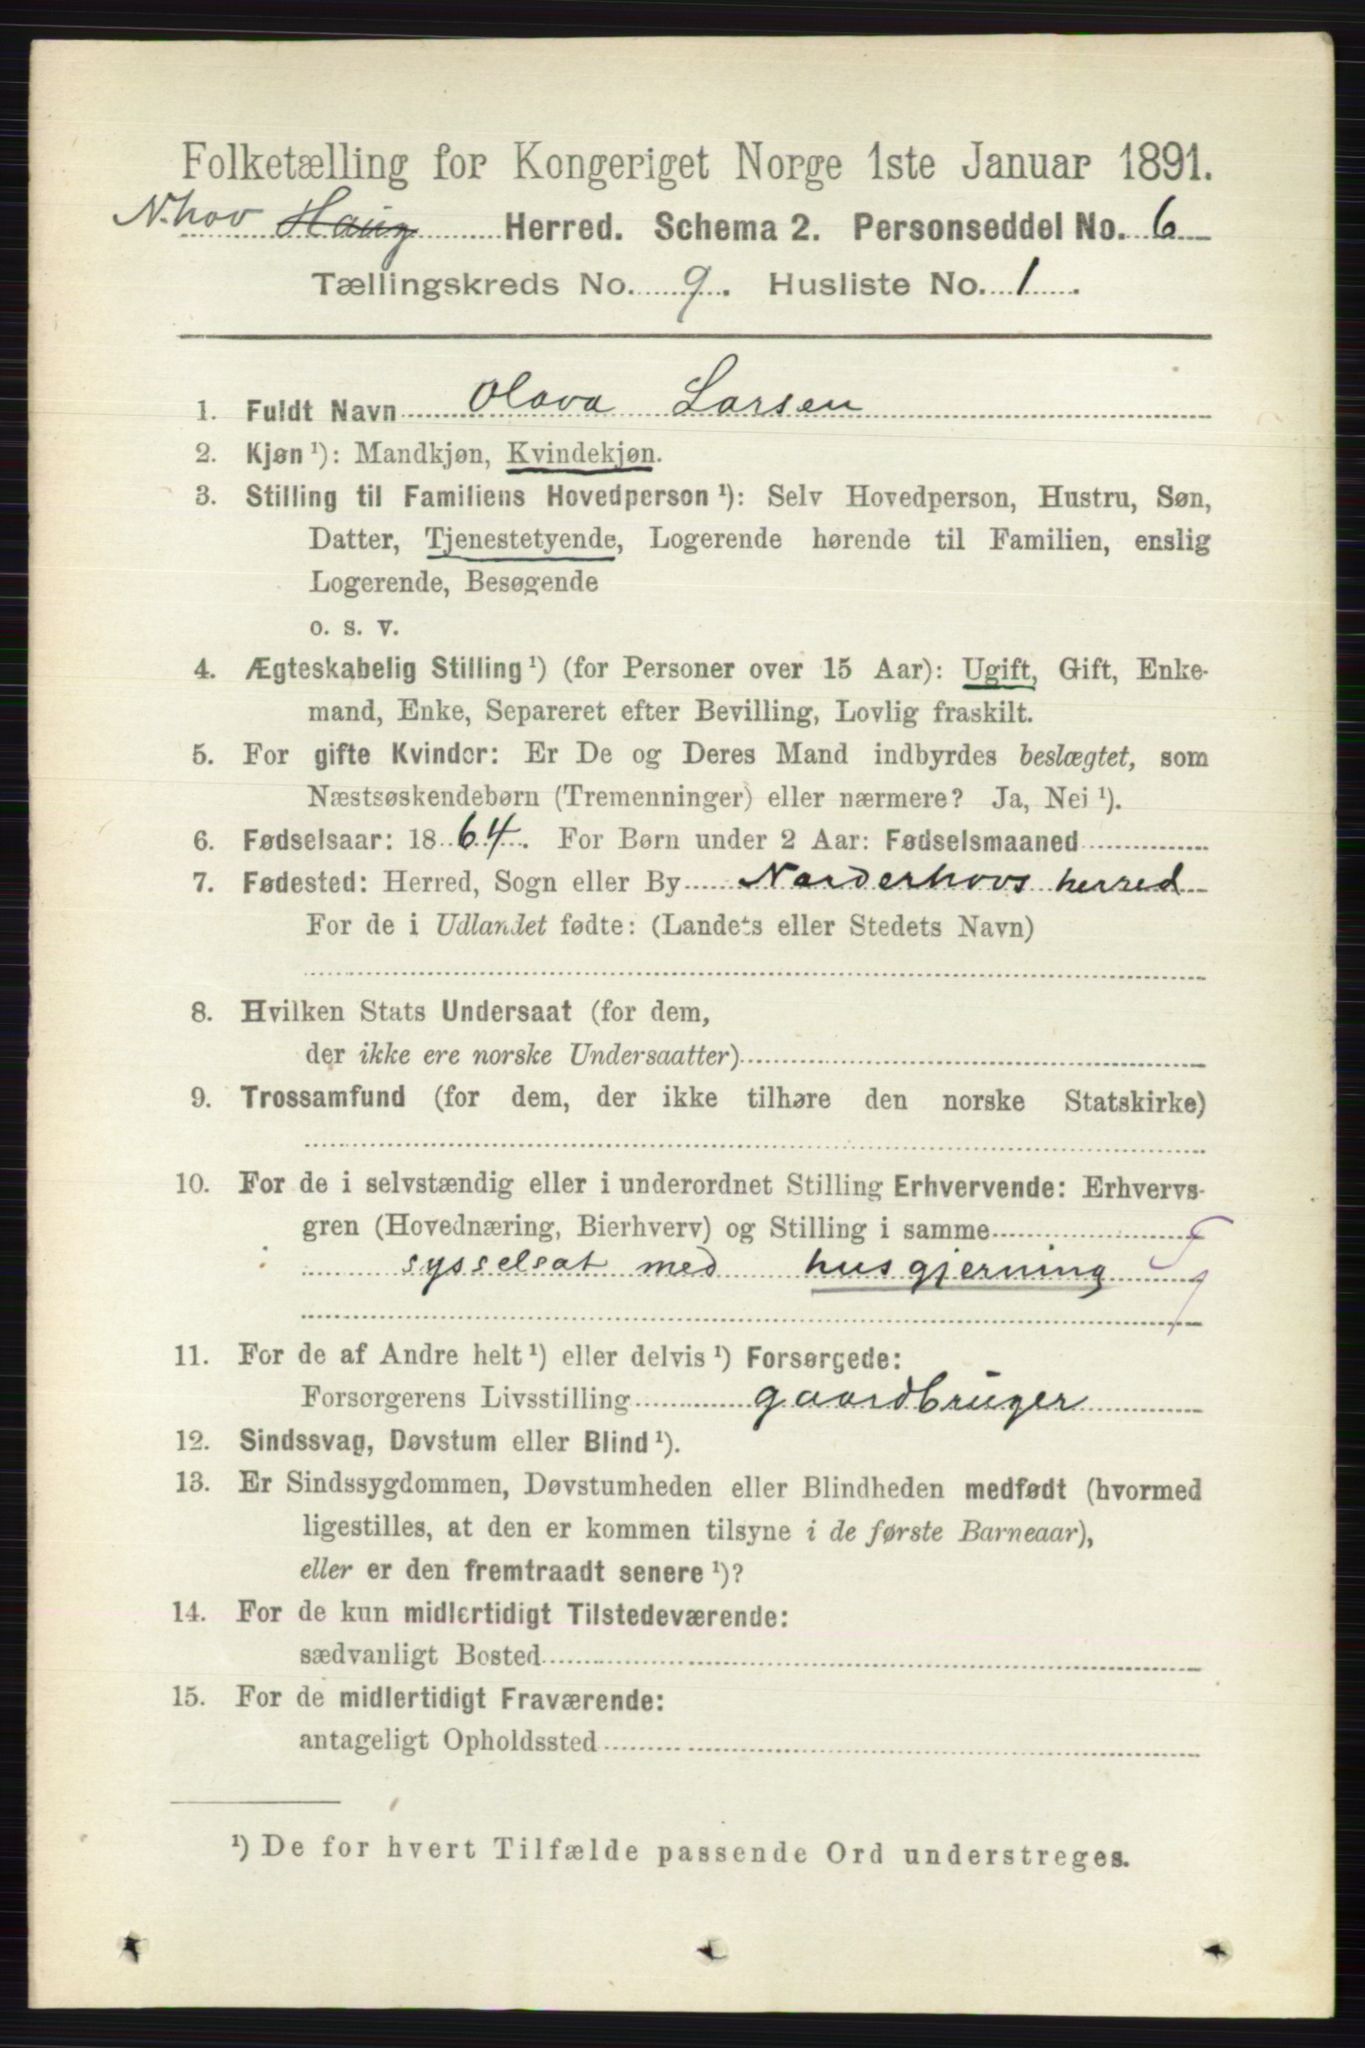 Folketælling for Kongeriget Norge 1ste Januar 1891.
N.hov Haug Herred. Schema 2. Personseddel No. 6
Tællingskreds No. 9. Husliste No. 1.
1. Fuldt Navn Olava Larsen
2. Kjøn ¹): Mandkjøn, Kvindekjøn.
3. Stilling til Familiens Hovedperson ¹): Selv Hovedperson, Hustru, Søn,
Datter, Tjenestetyende, Logerende hørende til Familien, enslig
Logerende, Besøgende
o. s. v.
4. Ægteskabelig Stilling ¹) (for Personer over 15 Aar): Ugift, Gift, Enke-
mand, Enke, Separeret efter Bevilling, Lovlig fraskilt.
5. For gifte Kvinder: Er De og Deres Mand indbyrdes beslægtet, som
Næstsøskendebørn (Tremenninger) eller nærmere? Ja, Nei ¹).
6. Fødselsaar: 1864. For Børn under 2 Aar: Fødselsmaaned
7. Fødested: Herred, Sogn eller By Norderhovs herred
For de i Udlandet fødte: (Landets eller Stedets Navn)
8. Hvilken Stats Undersaat (for dem,
der ikke ere norske Undersaatter)
9. Trossamfund (for dem, der ikke tilhøre den norske Statskirke)
10. For de i selvstændig eller i underordnet Stilling Erhvervende: Erhvervs-
gren (Hovednæring, Bierhverv) og Stilling i samme
sysselsat med husgjerning
11. For de af Andre helt ¹) eller delvis ¹) Forsørgede:
Forsørgerens Livsstilling gaardbruger
12. Sindssvag, Døvstum eller Blind ¹).
13. Er Sindssygdommen, Døvstumheden eller Blindheden medfødt (hvormed
ligestilles, at den er kommen tilsyne i de første Barneaar),
eller er den fremtraadt senere ¹)?
14. For de kun midlertidigt Tilstedeværende:
sædvanligt Bosted
15. For de midlertidigt Fraværende:
antageligt Opholdssted
¹) De for hvert Tilfælde passende Ord understreges.